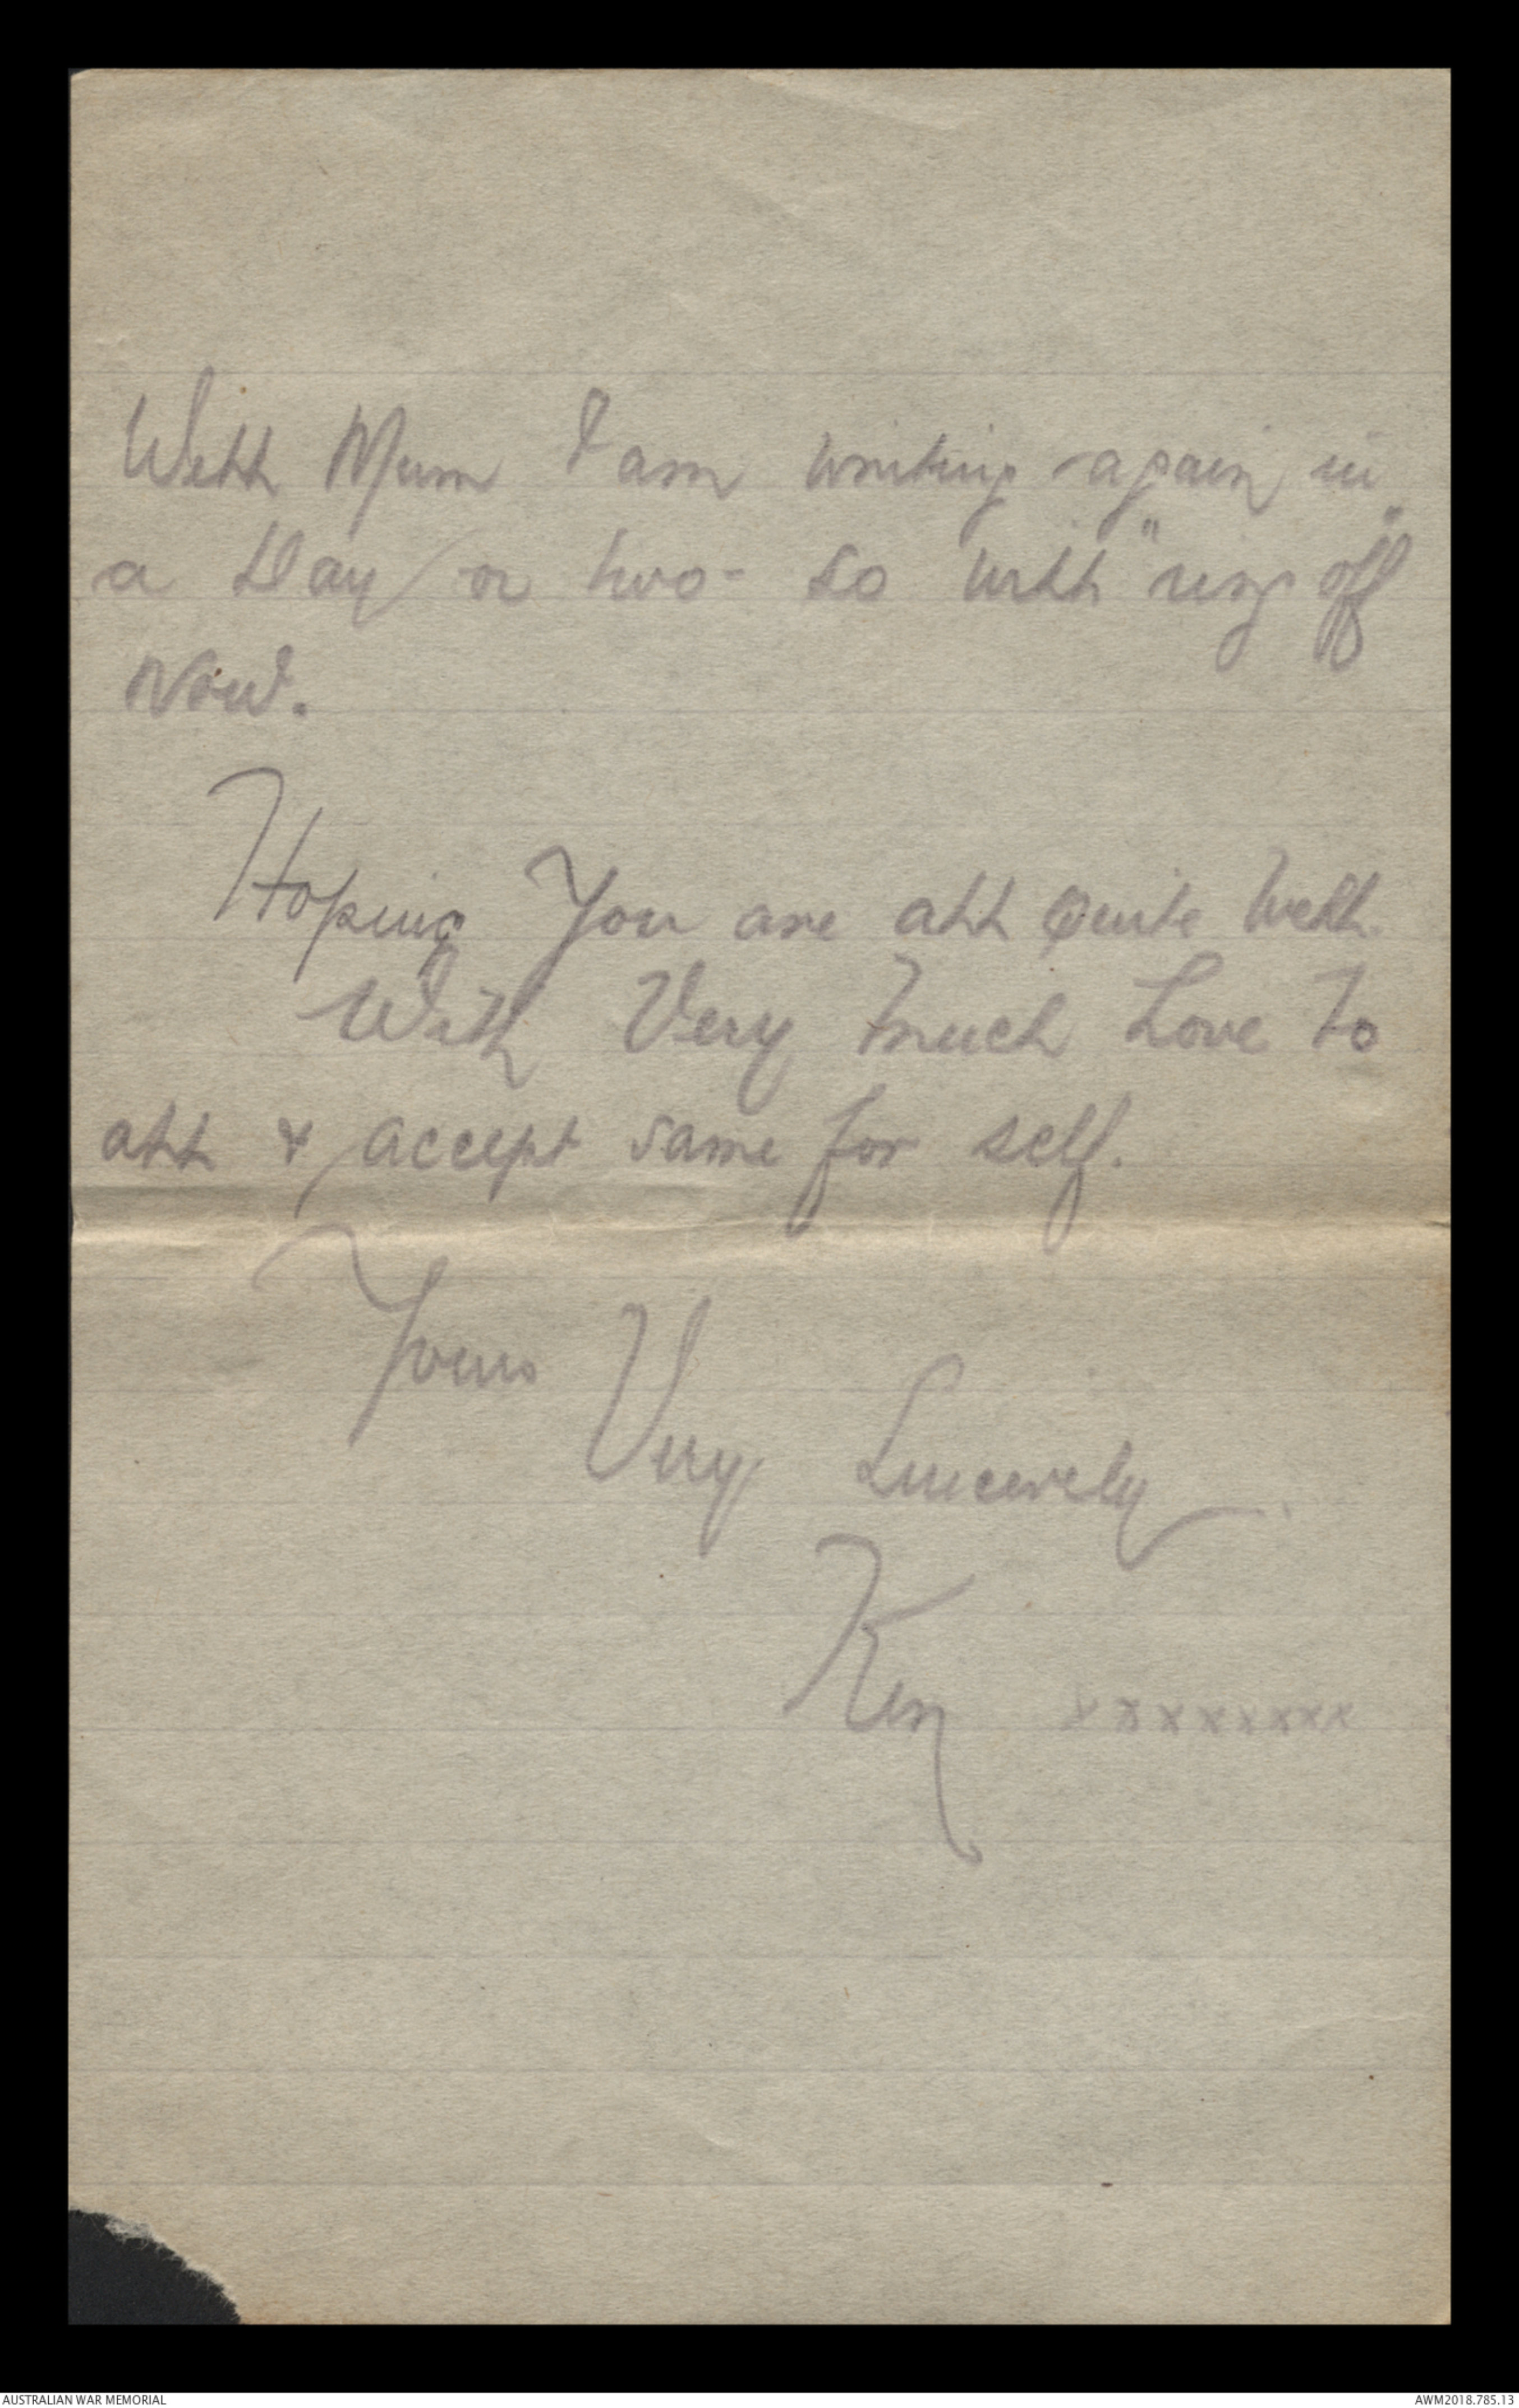 Well Mum I am writing again in
a Day or two - so will "ring off"
Now.
Hoping You are all Quite Well.
With Very Much Love To
all & accept same for self.
Yours
Very Sincerely.
Ken xxxxxxxx
AUSTRALIAN WAR MEMORIAL
AWM2018.785.13